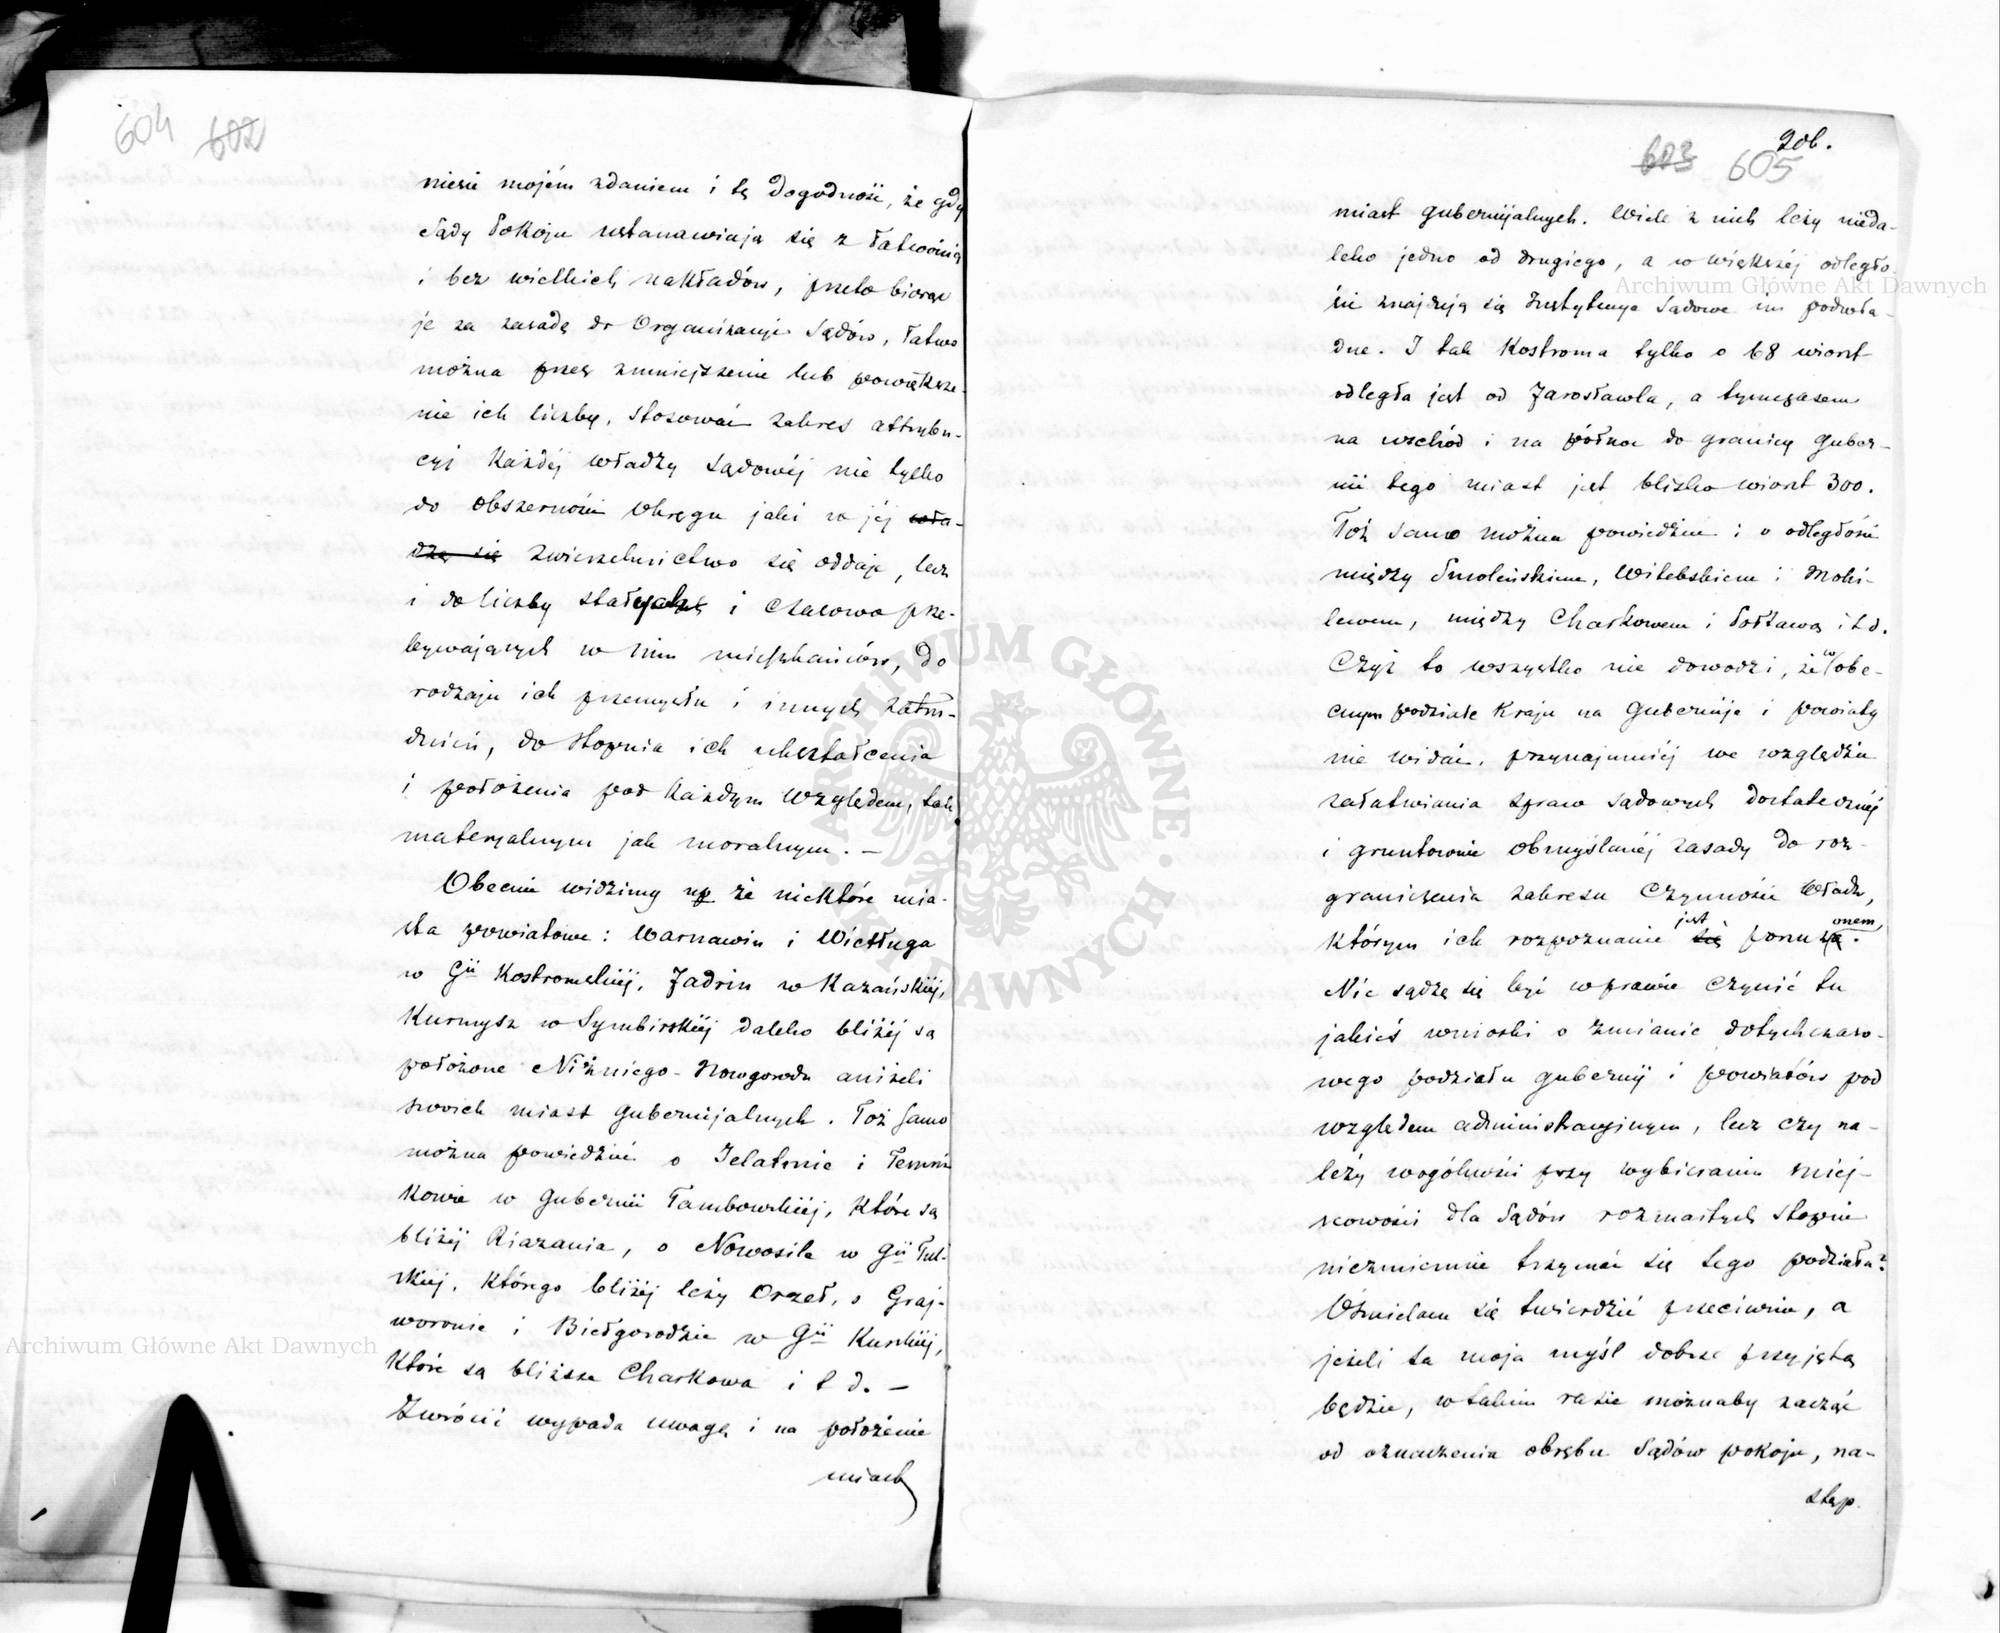 604 602
niesie mojém zdaniem i tę dogodność, że gdy
Sądy Pokoju ustanawiają się z łatwością
i bez wielkich nakładów, przeto biorąc
je za zasadę do Organizacyi Sądów, łatwo
można przez zmniejszenie lub powiększe-
nie ich liczby, stosować zakres attrybu-
cyi każdéj władzy sądowéj nie tylko
do obszerności Okręgu jaki w jéj wła-
dzę się zwierzchnictwo się oddaje, lecz
i do liczby stałych i czasowo prze-
bywających w nim mieszkańców, do
rodzaju ich przemysłu i innych zatru-
dnień, do stopnia ich ukształcenia
i położenia pod każdym względem, tak
materyalnym jak moralnym. —
Obecnie widzimy np że niektóre mia-
sta powiatowe: Warnawin i Wietługa
w Gii Kostromskiéj, Jadrin w Kazańskiéj,
Kurmysz w Symbirskiéj daleko bliżéj są
położone Niżniego-Nowgorodu aniżeli
swoich miast gubernijalnych. Toż samo
można powiedzieć o Jelatmie i Temni
kowie w Gubernii Tambowskiéj, które są
bliżéj Riazania, o Nowosile w Gii Tul-
skiéj, którego bliżéj leży Orzeł, o Graj-
woronie i Biełgorodzie w Gii Kurskiéj,
które są bliższe Charkowa i t d. —
Zwrócić wypada uwagę i na położenie
miast
20b.
603 605
miast gubernijalnych. Wiele z nich leży nieda-
leko jedno od drugiego, a w większéj odległo-
ści znajdują się Instytucye Sądowe im podwła-
dne. I tak Kostroma tylko o 68 wiorst
odległa jest od Jarosławla, a tymczasem
na wschód i na północ do granicy guber-
nii tego miast jest blizko wiorst 300.
Toż samo można powiedzieć i o odległości
między Smoleńskiem, Witebskiem i Mohi-
lewem, między Charkowem i Połtawą i t d.
Czyż to wszystko nie dowodzi, że w obe-
cnym podziale Kraju na Gubernije i powiaty
nie widać, przynajmniéj we względzie
załatwiania spraw sądowych dostatecznéj
i gruntownie obmyślanéj zasady do roz-
graniczenia zakresu czynności władz,
jest onem,
którym ich rozpoznanie się poru
Nie sądzę się być w prawie czynić tu
jakieś wnioski o zmianie dotychczaso-
wego podziału gubernij i powiatów pod
względem administracyjnym, lecz czy na-
leży wogólności przy wybieraniu miéj-
scowości dla Sądów rozmaitych stopni
niezmiennie trzymać się tego podziału?
Ośmielam się twierdzić przeciwnie, a
jeżeli ta moja myśl dobrze przyjętą
będzie, w takim razie możnaby zacząć
od oznaczenia obrębu Sądów pokoju, na-
stęp.
Archiwum Główne Akt Dawnych
Archiwum Główne Akt Dawnych
ARCHIWUM GŁÓWNE · AKT DAWNYCH ·